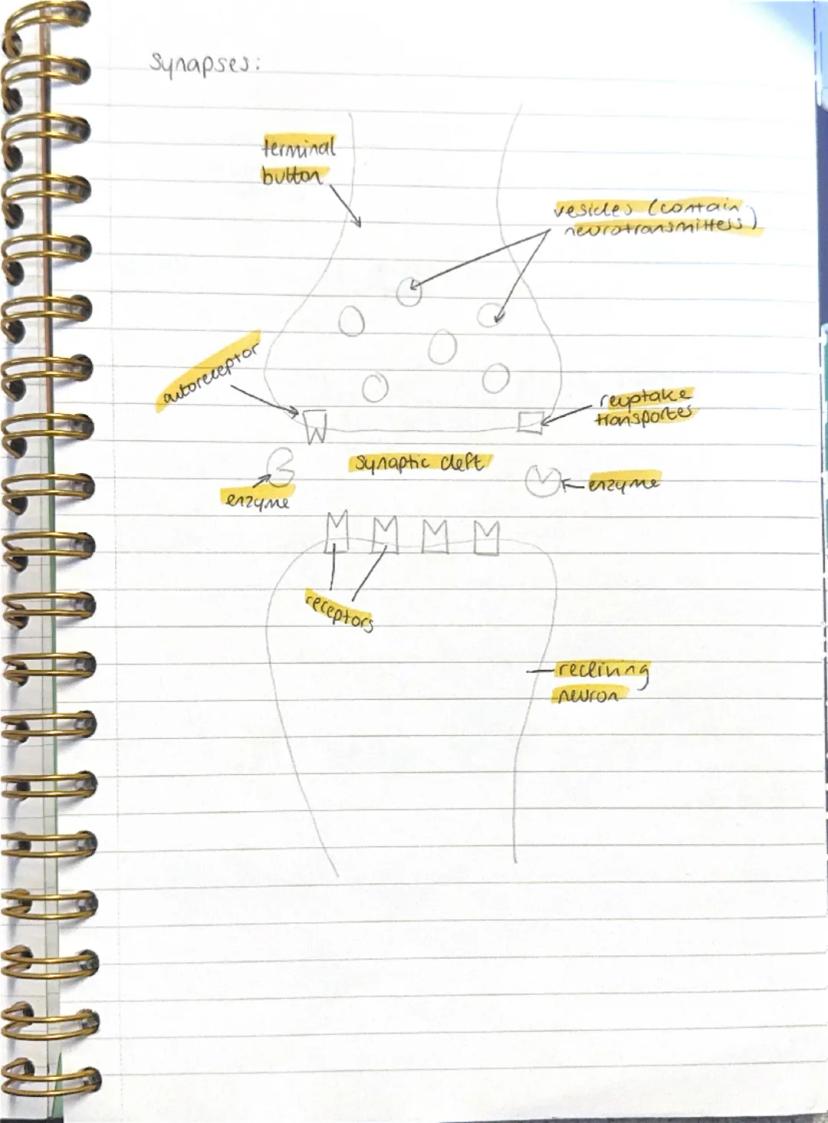 Synapses:
terminal
button
vesicles (contain
neurotransmitters)
autoreceptor
reuptake
transportes
synaptic cleft
enzyme
enzyme
receptors
recieving
neuron